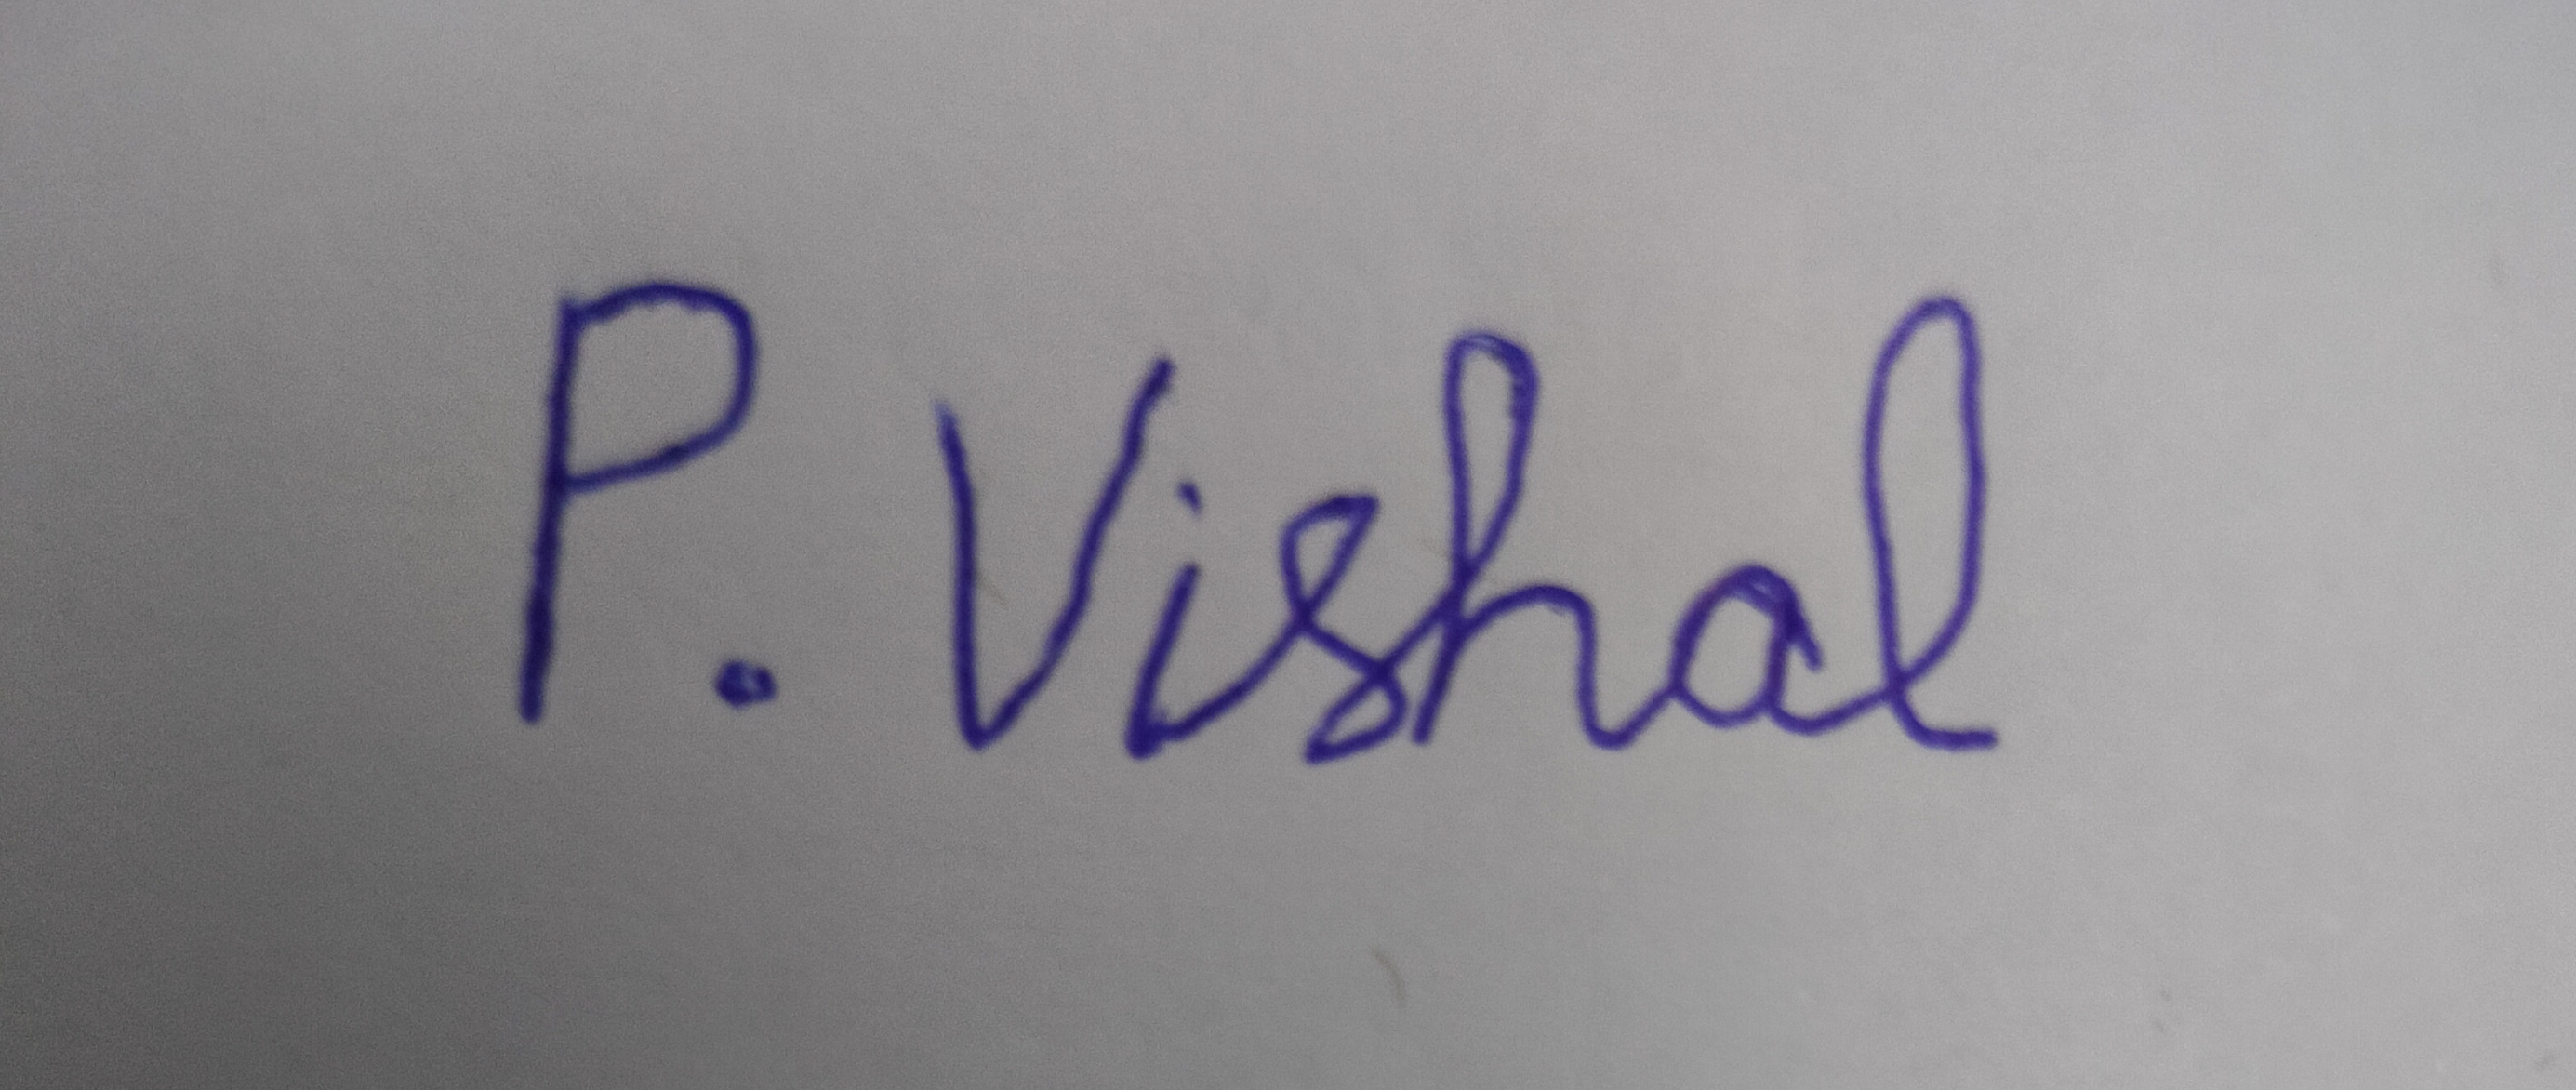 P. Vishal